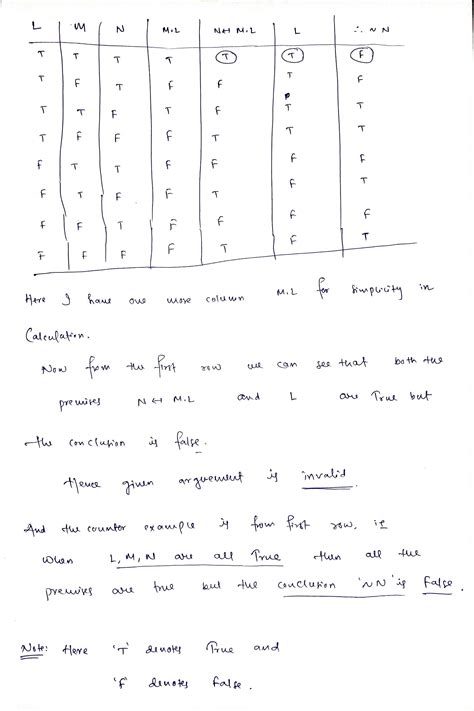 L M N M.L N↔M.L L ∴ ~N
T T T T T T F
T F T F F T F
T T F T F T T
T F F F T T T
F T T F F F F
F T F F T F T
F F T F F F F
F F F F T F T
Here I have one more column M.L for simplicity in
Calculation.
Now from the first row we can see that both the
premises N↔M.L and L are True but
the conclusion is false.
Hence given arguement is invalid
And the counter example is from first row, ie
when L, M, N are all True then all the
premises are true but the conclusion '~N' is False.
Note: Here 'T' denotes True and
'F' denotes False.